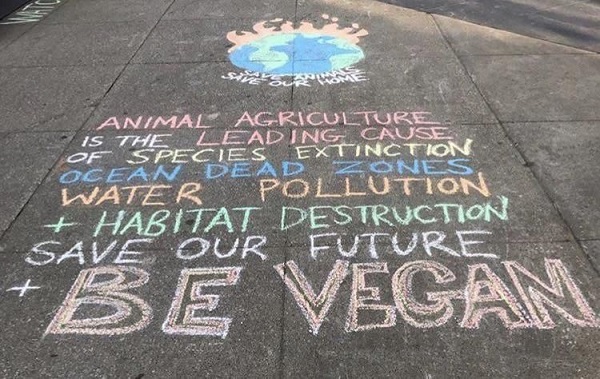 WATC
SAVE ANIMALS
SAVE OUR HOME
ANIMAL AGRICULTURE
IS THE LEADING CAUSE
OF SPECIES EXTINCTION
OCEAN DEAD ZONES
WATER POLLUTION
+ HABITAT DESTRUCTION
SAVE OUR FUTURE
+ BE VEGAN